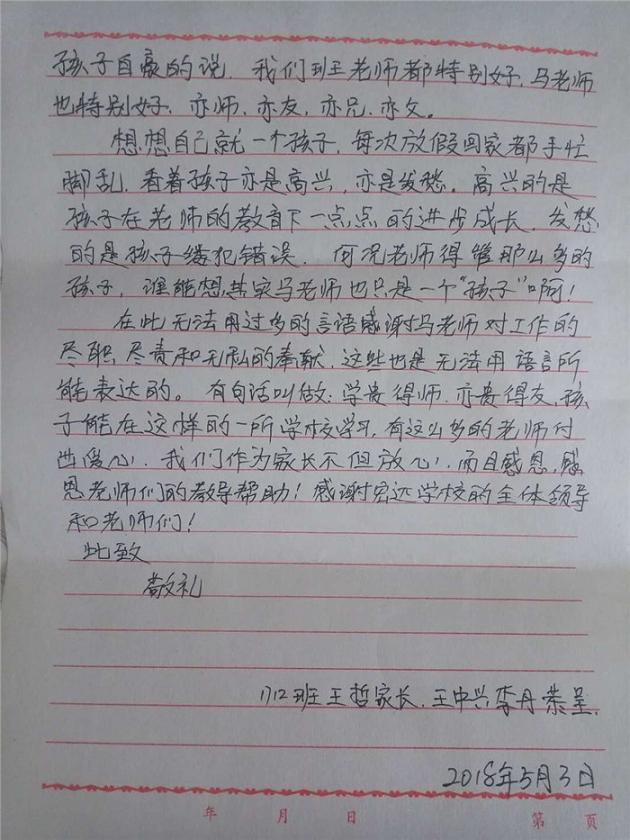 孩子自豪的说，我们班王老师都特别好，马老师
也特别好，亦师，亦友，亦兄，亦父。
想想自己就一个孩子，每次放假回家都手忙
脚乱，看着孩子亦是高兴，亦是发愁。高兴的是
孩子在老师的教育下一点点的进步成长，发愁
的是孩子缕犯错误，何况老师得管那么多的
孩子，谁能想其实马老师也只是一个“孩子”啊！
在此无法用过多的言语感谢马老师对工作的
尽职、尽责和无私的奉献，这些也是无法用语言所
能表达的。有句话叫做：学贵得师，亦贵得友，孩
子能在这样的一所学校学习，有这么多的老师付
出爱心，我们作为家长不但放心，而且感恩，感
恩老师们的教导帮助！感谢宏远学校的全体领导
和老师们！
此致
敬礼
1712班王哲家长，王中兴李丹荣呈，
2018年5月3日
年 月 日 第 页